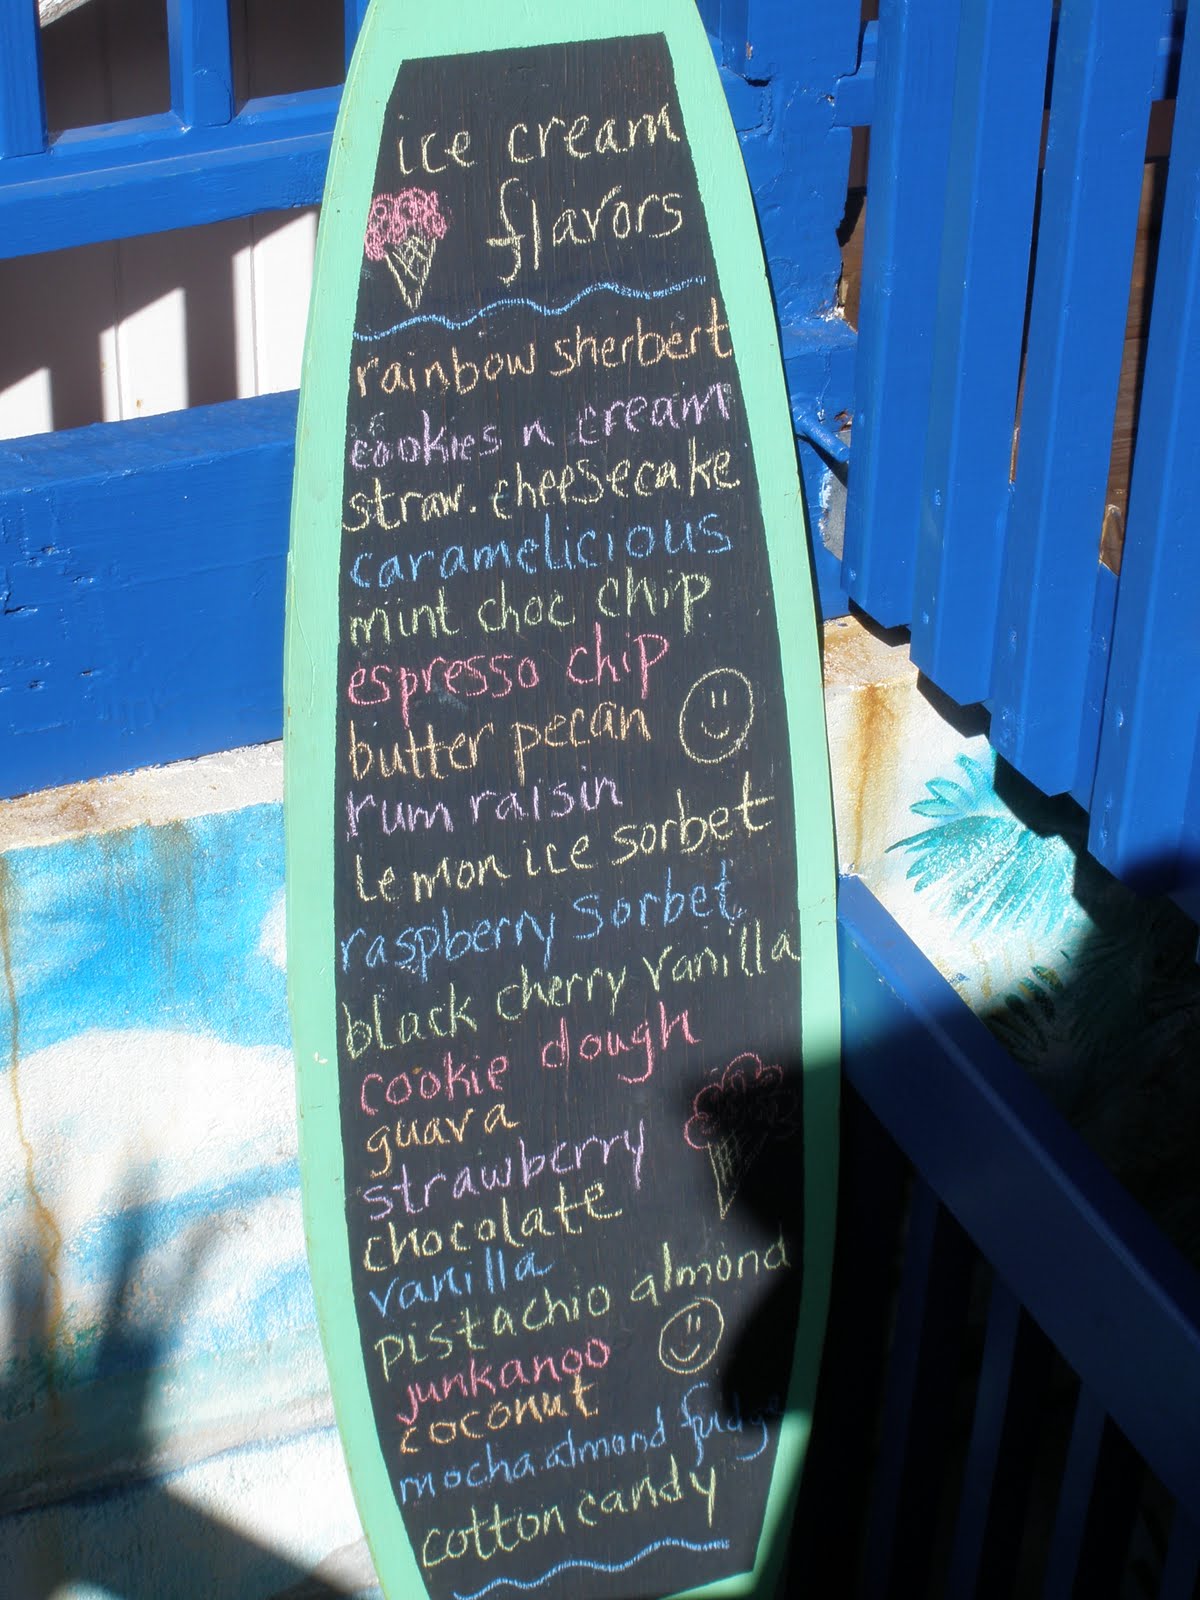 ice cream
flavors
rainbow sherbert
cookies n cream
straw. cheesecake
caramelicious
mint choc chip
espresso chip
butter pecan
rum raisin
lemon ice sorbet
raspberry sorbet
black cherry vanilla
cookie dough
guava
strawberry
chocolate
vanilla
pistachio almond
junkanoo
coconut
mocha almond fudge
cotton candy